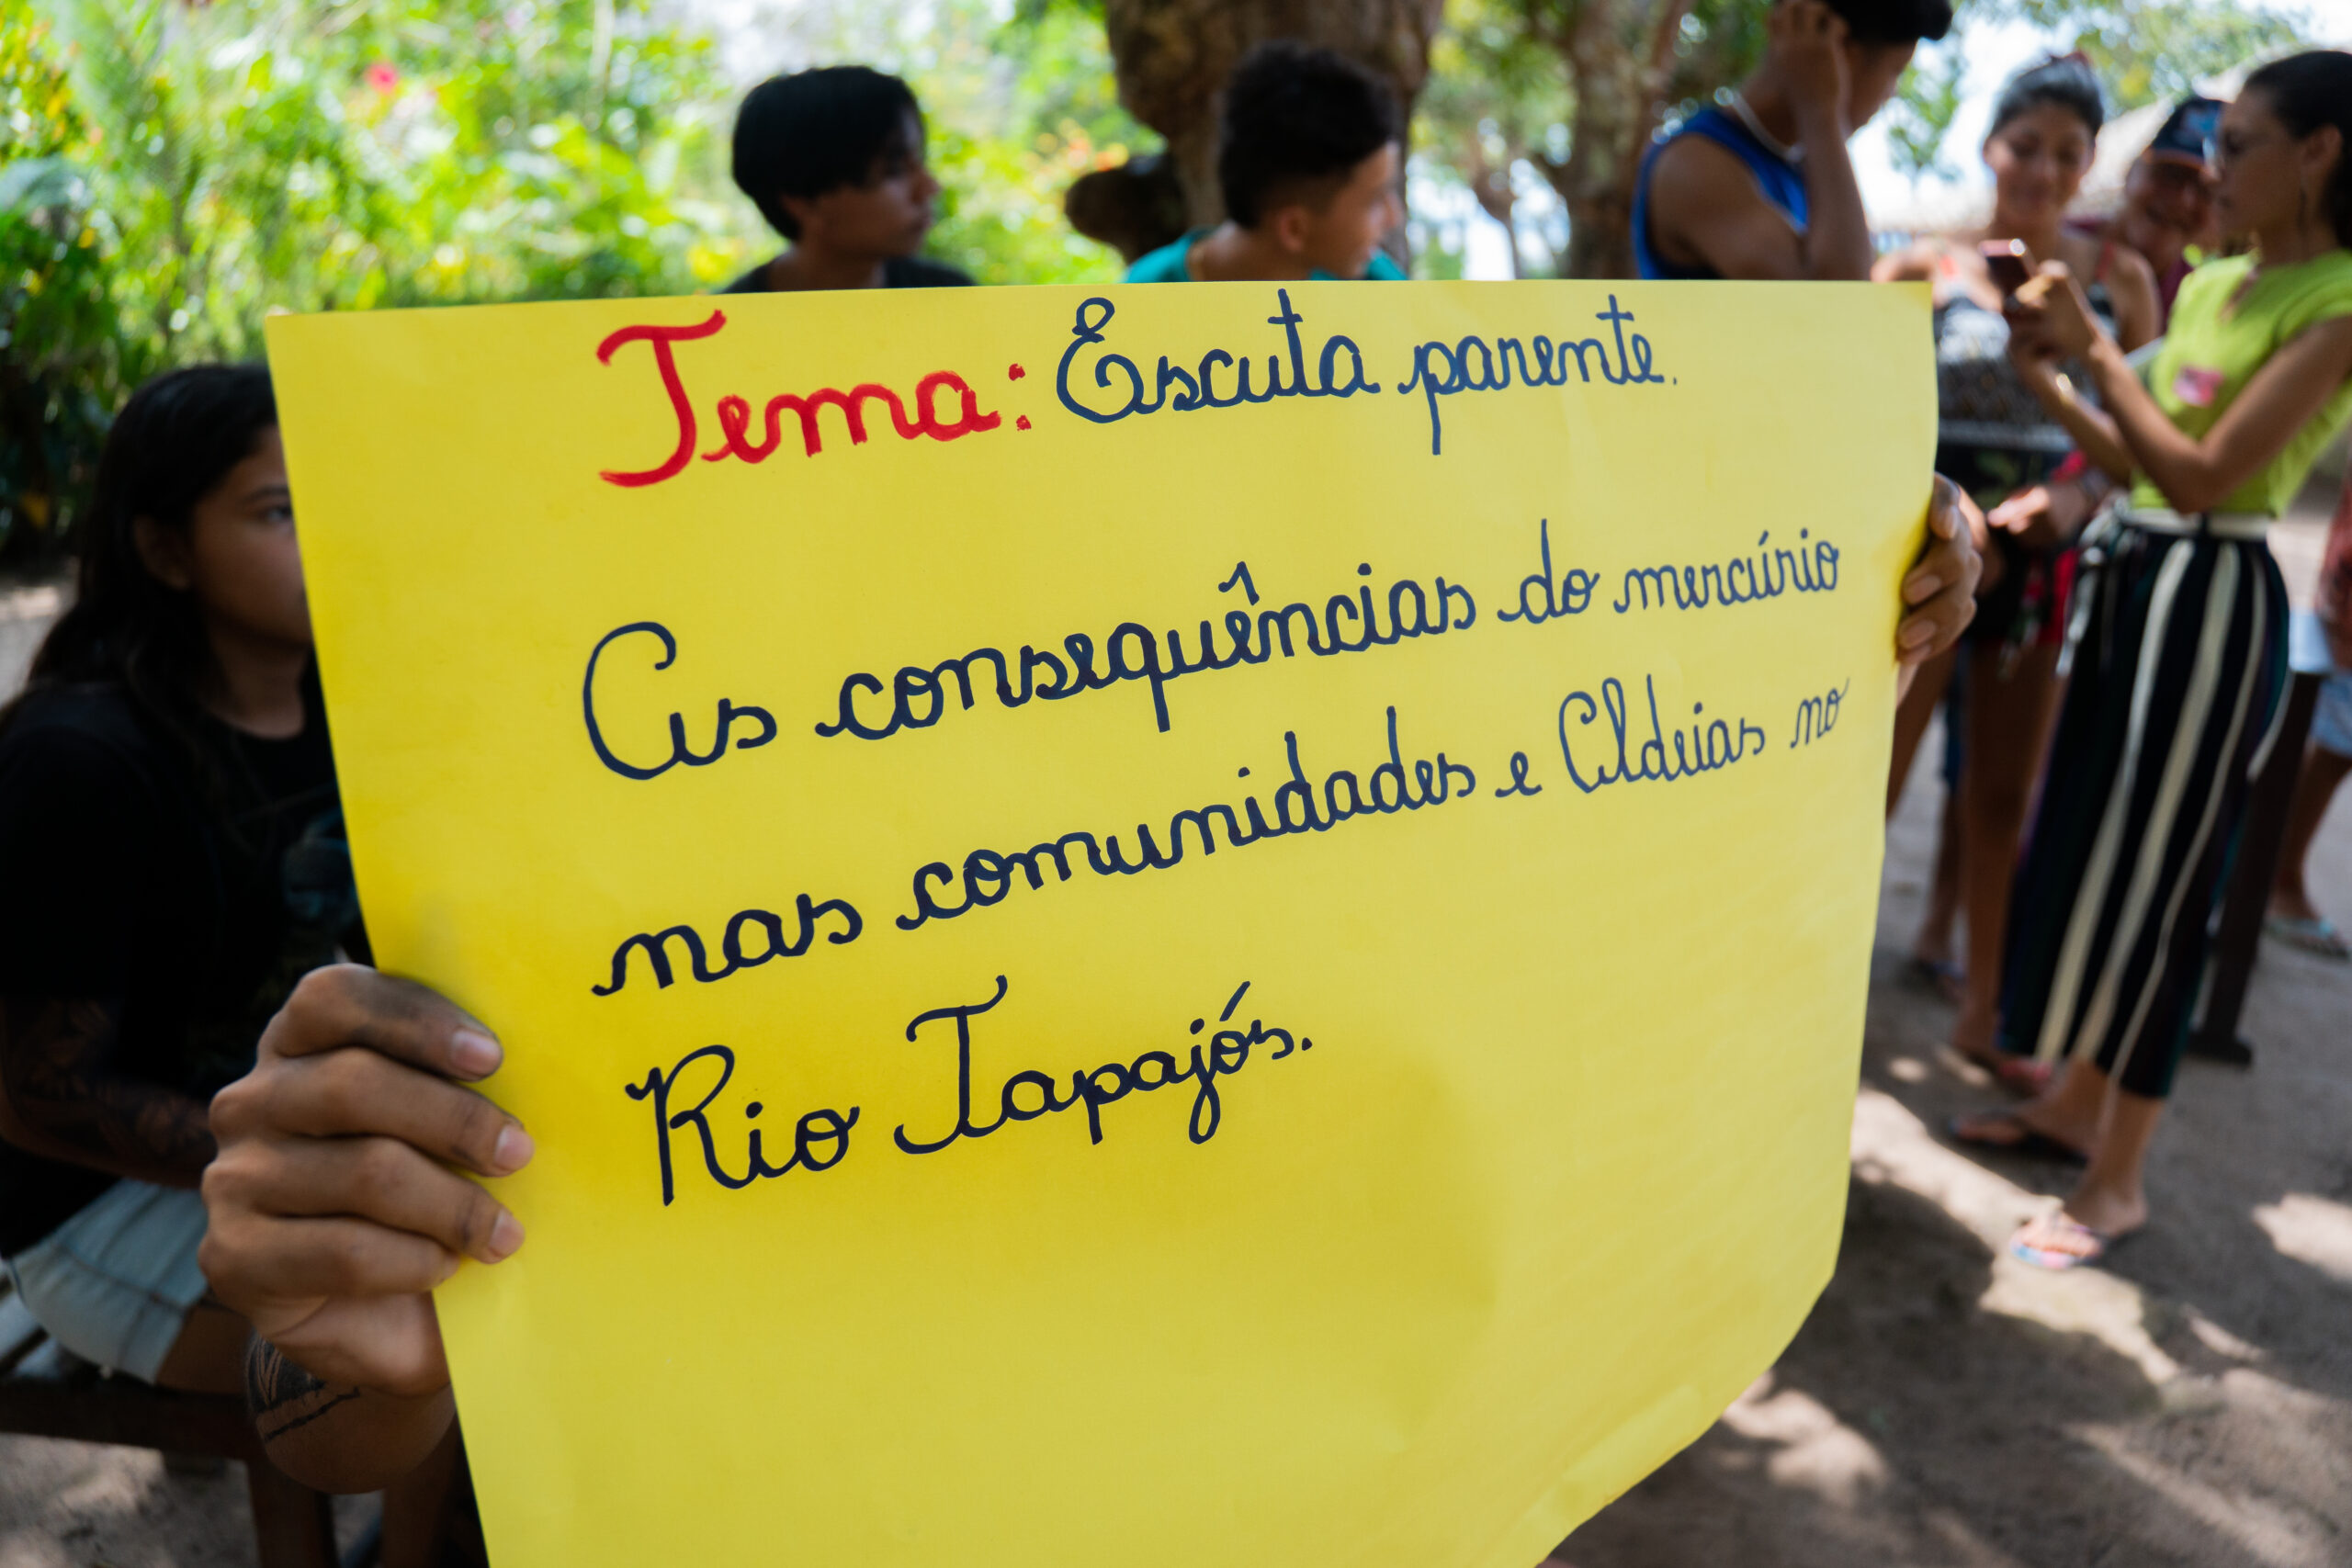 Tema: Escuta parente.
As consequências do mercúrio
nas comunidades e Aldeias no
Rio Tapajós.